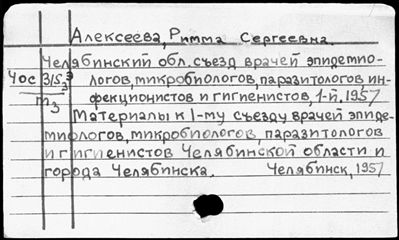 Алексеева, Римма Сергеевна.
Челябинский обл. съезд врачей эпидемио-
Чос 315.3 логов, микробиологов, паразитологов ин-
m3 фекционистов и гигиенистов, 1-й. 1957
Материалы к 1-му съезду врачей эпиде-
миологов, микробиологов, паразитологов
и гигиенистов Челябинской области и
города Челябинска. Челябинск, 1957